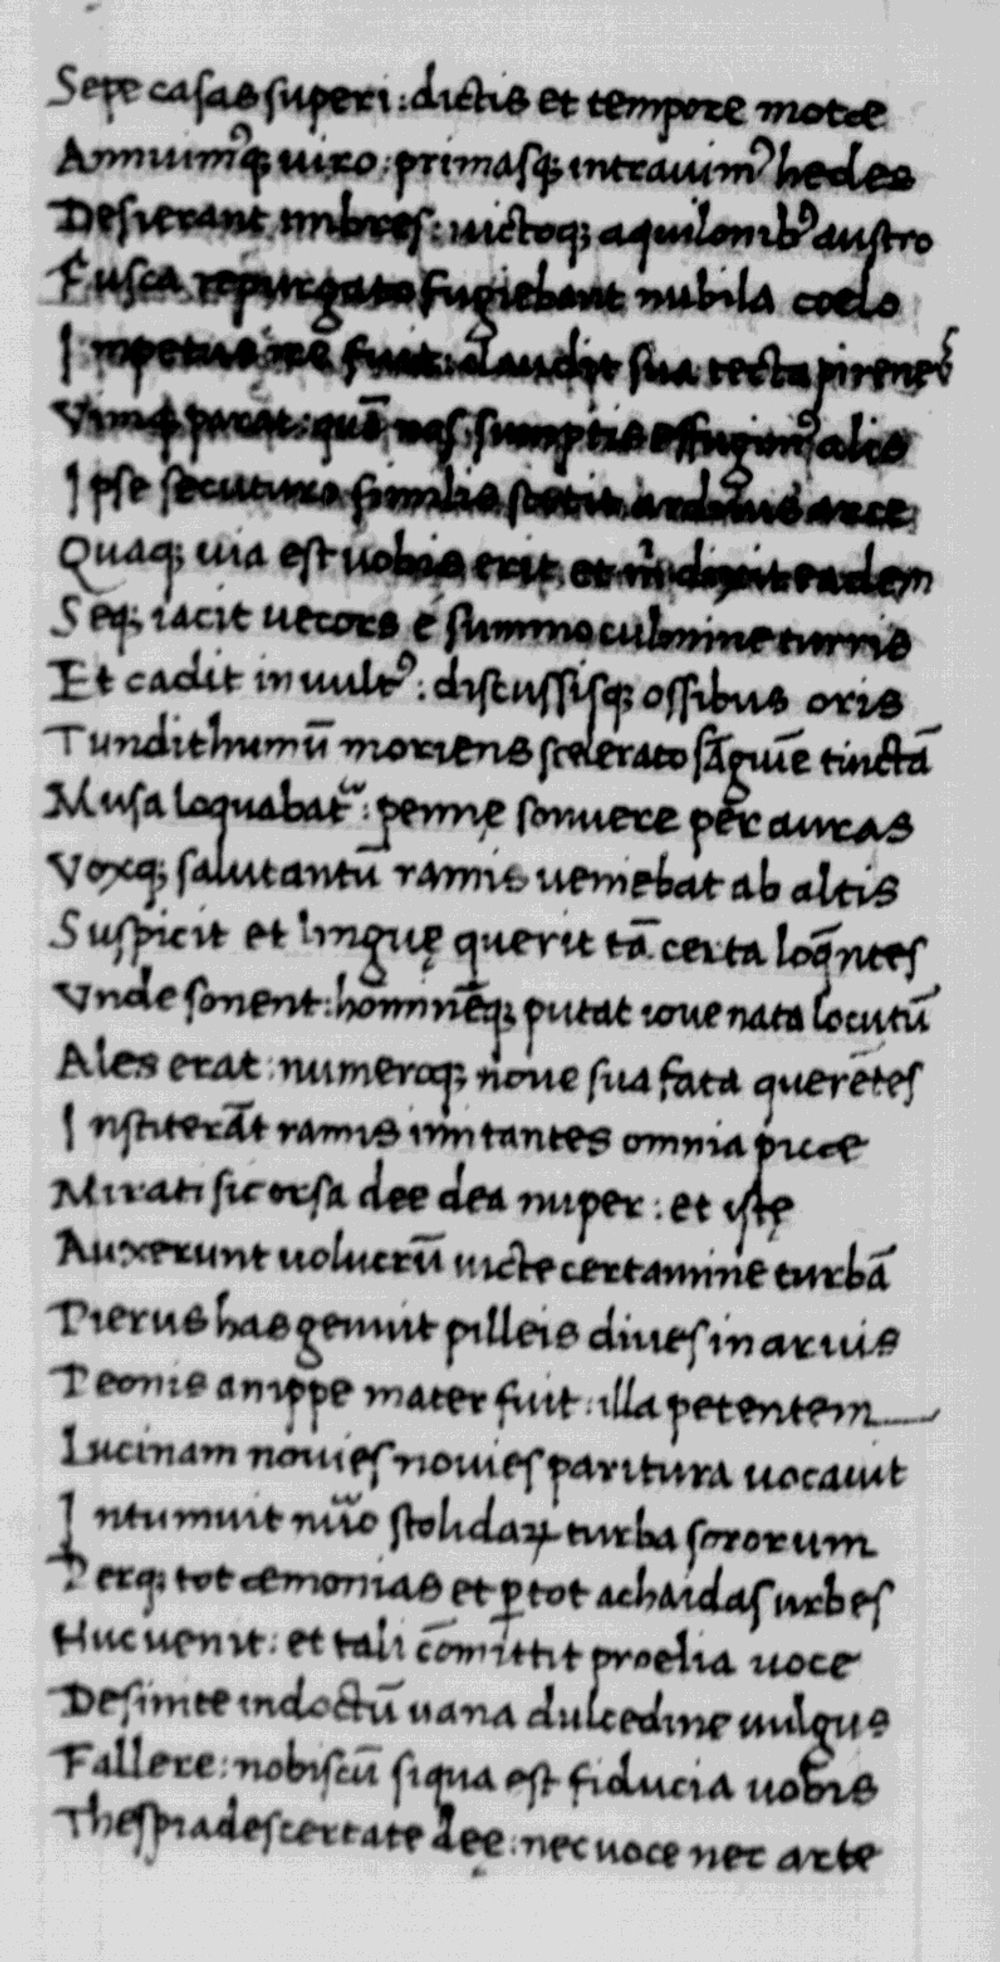 Sepe casas superi : dictis et tempore motae
Annuimq; uiro : primasq; intrauim9 hedes
Desierant imbres : uictoq; aquilonib9 austro
Fusca repurgato fugiebant nubila coelo
Impetus ire fuit : claudit sua tecta pireneus
Vimq; parat : quā nos sumptis effugim9 alis
Ipse secuturo similis stetit arduus arce
Quaq; uia est uobis erit et m̄ dixit eadem
Seq; iacit uecors e summo culmine turris
Et cadit in uult9 : discussisq; ossibus oris
Tundit humū moriens scelerato sāguīe tinctā
Musa loquabat᷑ : penne sonuere per auras
Voxq; salutantū ramis ueniebat ab altis
Suspicit et linguę querit tā certa loq̄ntes
Vnde sonent : hominēq; putat ioue nata locutū
Ales erat : numeroq; noue sua fata querētes
Institerāt ramis imitantes omnia picae
Mirati sic orsa dee dea nuper : et istę
Auxerunt uolucrū uicte certamine turbā
Pierus has genuit pilleis diues in aruis
Peonis anippe mater fuit : illa petentem
Lucinam nouies nouies paritura uocauit
Intumuit nūo stolidaꝝ turba sororum
Perq; tot aemonias et ꝑ tot achaidas urbes
Huc uenit : et tali cōmittit proelia uoce
Desinite indoctū uana dulcedine uulgus
Fallere : nobiscū siqua est fiducia uobis
Thespiades certate dee : nec uoce nec arte